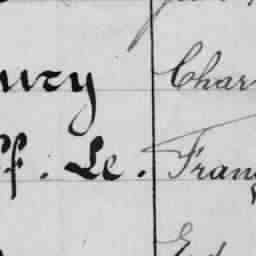 ury Char
ff. Le. Fran
Ed